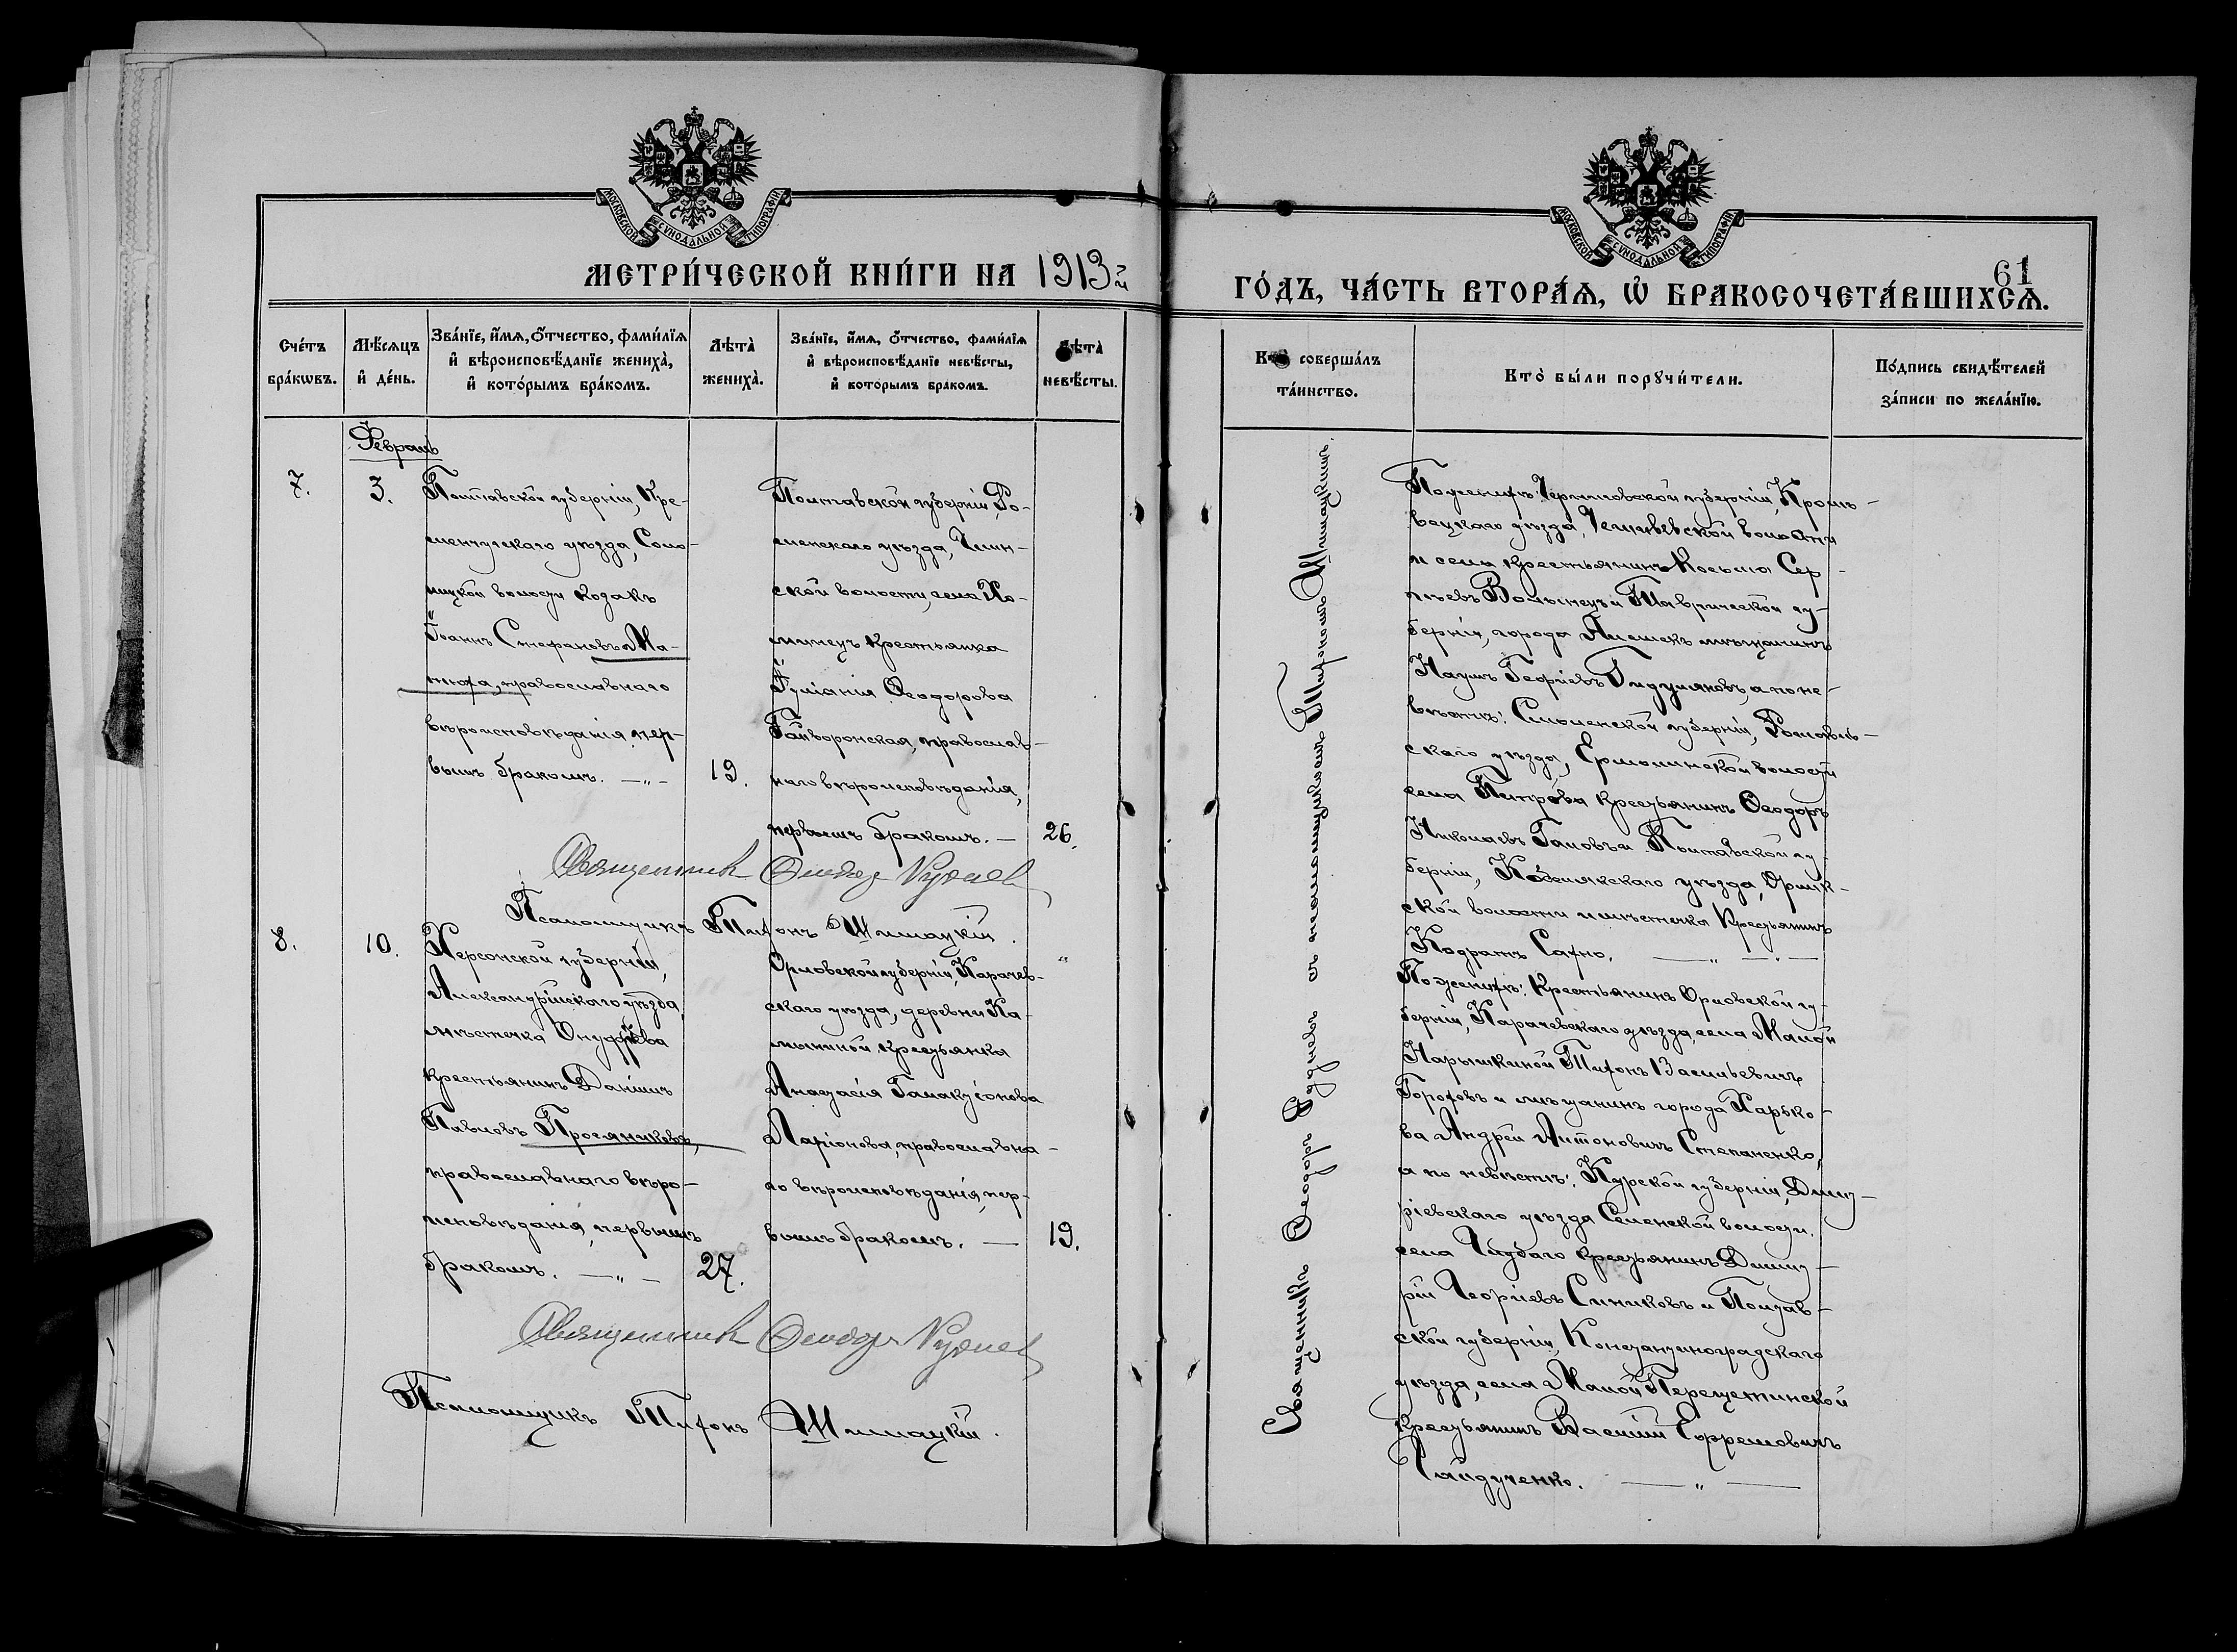 МОСКОВСКОЙ СѴНОДАЛЬНОЙ ТИПОГРАФІИ
МЕТРИ́ЧЕСКОЙ КНИ́ГИ НА 1913 г.
Сче́тъ бра́кѡвъ.
Мѣ́сяцъ и҆ де́нь.
Зва́нїе, и҆́мѧ, ѻ҆́тчество, фами́лїѧ и҆ вѣроисповѣ́данїе жениха̀, и҆ кото́рымъ бра́комъ.
Лѣта̀ жениха̀.
Зва́нїе, и҆́мѧ, ѻ҆́тчество, фами́лїѧ и҆ вѣроисповѣ́данїе невѣ́сты, и҆ кото́рымъ бра́комъ.
Лѣта̀ невѣ́сты.
Февраль
7.
3.
Полтавской губерніи, Кре-
менчугскаго уѣзда,
волости козакъ
Іоаннъ Стефановъ Ма-
тюха, православнаго
вѣроисповѣданія, пер-
вымъ бракомъ. — " —
19.
Полтавской губерніи, Ро-
менскаго уѣзда,
ской волости, села Хо-
минецъ крестьянка
Іуліанія Ѳеодорова
Гайворонская, православ-
наго вѣроисповѣданія,
первымъ бракомъ. —
26.
Священникъ Ѳеодоръ Руднев
Псаломщикъ Тихонъ Шимацкій.
8.
10.
"
Херсонской губерніи,
Александрійскаго уѣзда,
мѣстечка Онуфріева
крестьянинъ Даніилъ
Павловъ Просяниковъ,
православнаго вѣро-
исповѣданія, первымъ
бракомъ. — " —
27.
Орловской губерніи, Карачев-
скаго уѣзда, деревни
крестьянка
Анастасія Галактіонова
Ларіонова, православна-
го вѣроисповѣданія, пер-
вымъ бракомъ. —
19.
Священникъ Ѳеодоръ Руднев
Псаломщикъ Тихонъ Шимацкій.
МОСКОВСКОЙ СѴНОДАЛЬНОЙ ТИПОГРАФІИ
61
ГО́ДЪ, ЧА́СТЬ ВТОРА́Ѧ, Ѡ҆ БРАКОСОЧЕТА́ВШИХСѦ.
Кто̀ соверша́лъ та́инство.
Кто̀ бы́ли порꙋчи́тели.
По́дпись свидѣ́телей за́писи по жела́нїю.
Священникъ Ѳеодоръ Рудневъ съ псаломщикомъ Тихономъ Шимацкимъ.
По женихѣ: Черниговской губерніи, Кроле-
вецкаго уѣзда, волости
и села крестьянинъ Косьма Сер-
гѣевъ Волынецъ и Таврической гу-
берніи, города Алешекъ мѣщанинъ
Наумъ Георгіевъ а по не-
вѣстѣ: Смоленской губерніи, Рославль-
скаго уѣзда, Ермолинской волости
села Петрова крестьянинъ Ѳеодоръ
Николаевъ и Полтавской гу-
берніи, уѣзда,
ской волости и мѣстечка крестьянинъ
Кодратъ Сахно. — " — " —
По женихѣ: крестьянинъ Орловской гу-
берніи, Карачевскаго уѣзда, села Малой
Нарышкиной Тихонъ Васильевичъ
и мѣщанинъ города Харько-
ва Андрей Антоновичъ Степаненко,
а по невѣстѣ: Курской губерніи, Дмит-
ріевскаго уѣзда волости,
села крестьянинъ Дмит-
рій Георгіевъ Синиковъ и Полтав-
ской губерніи, Константиноградскаго
уѣзда, села Малой Перещепинской
крестьянинъ Василій Ефремовичъ
Гайдученко. — " —